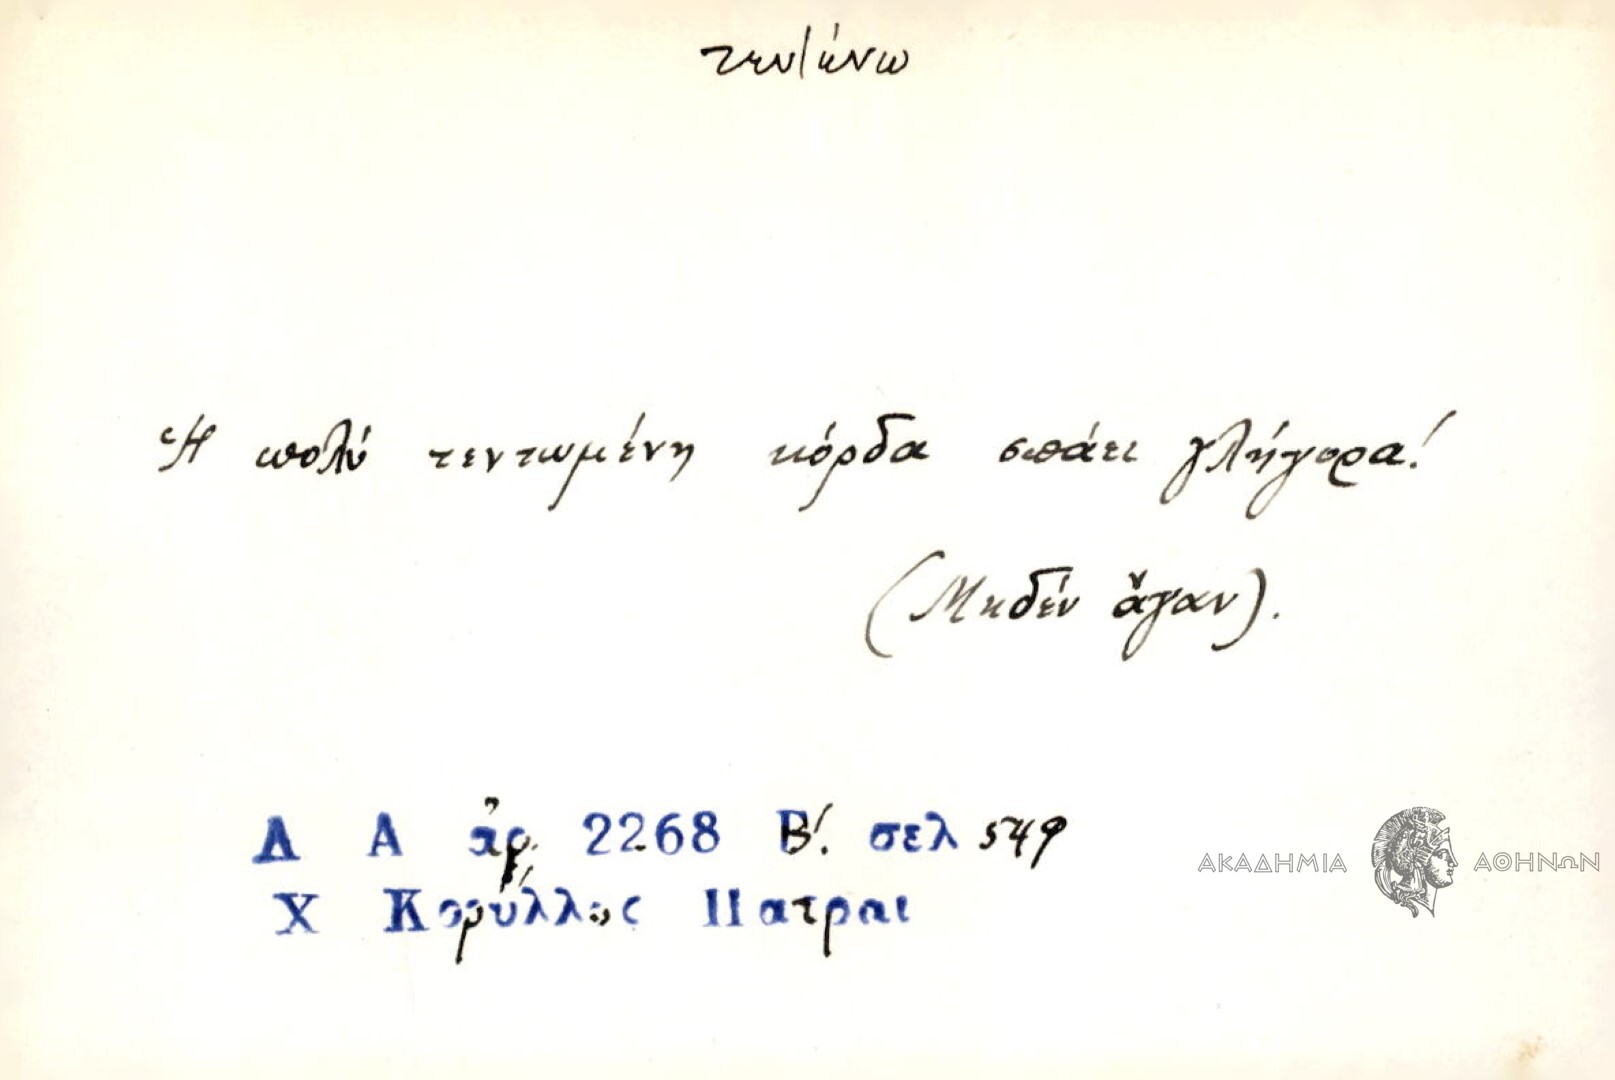 τεντώνω
Ἡ πολύ τεντωμένη κόρδα σπάει γλήγορα!
(Μηδέν ἄγαν).
Λ Α ἀρ. 2268 Β'. σελ 549
Χ Κορύλλος Πατραι
ΑΚΑΔΗΜΙΑ ΑΘΗΝΩΝ